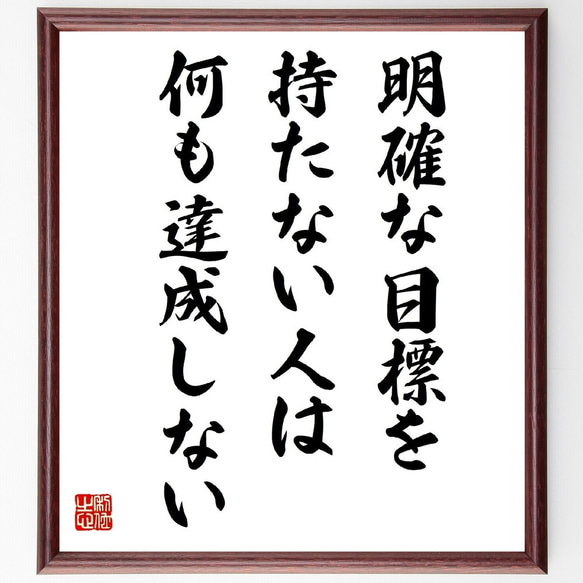 明確な目標を
持たない人は
何も達成しない